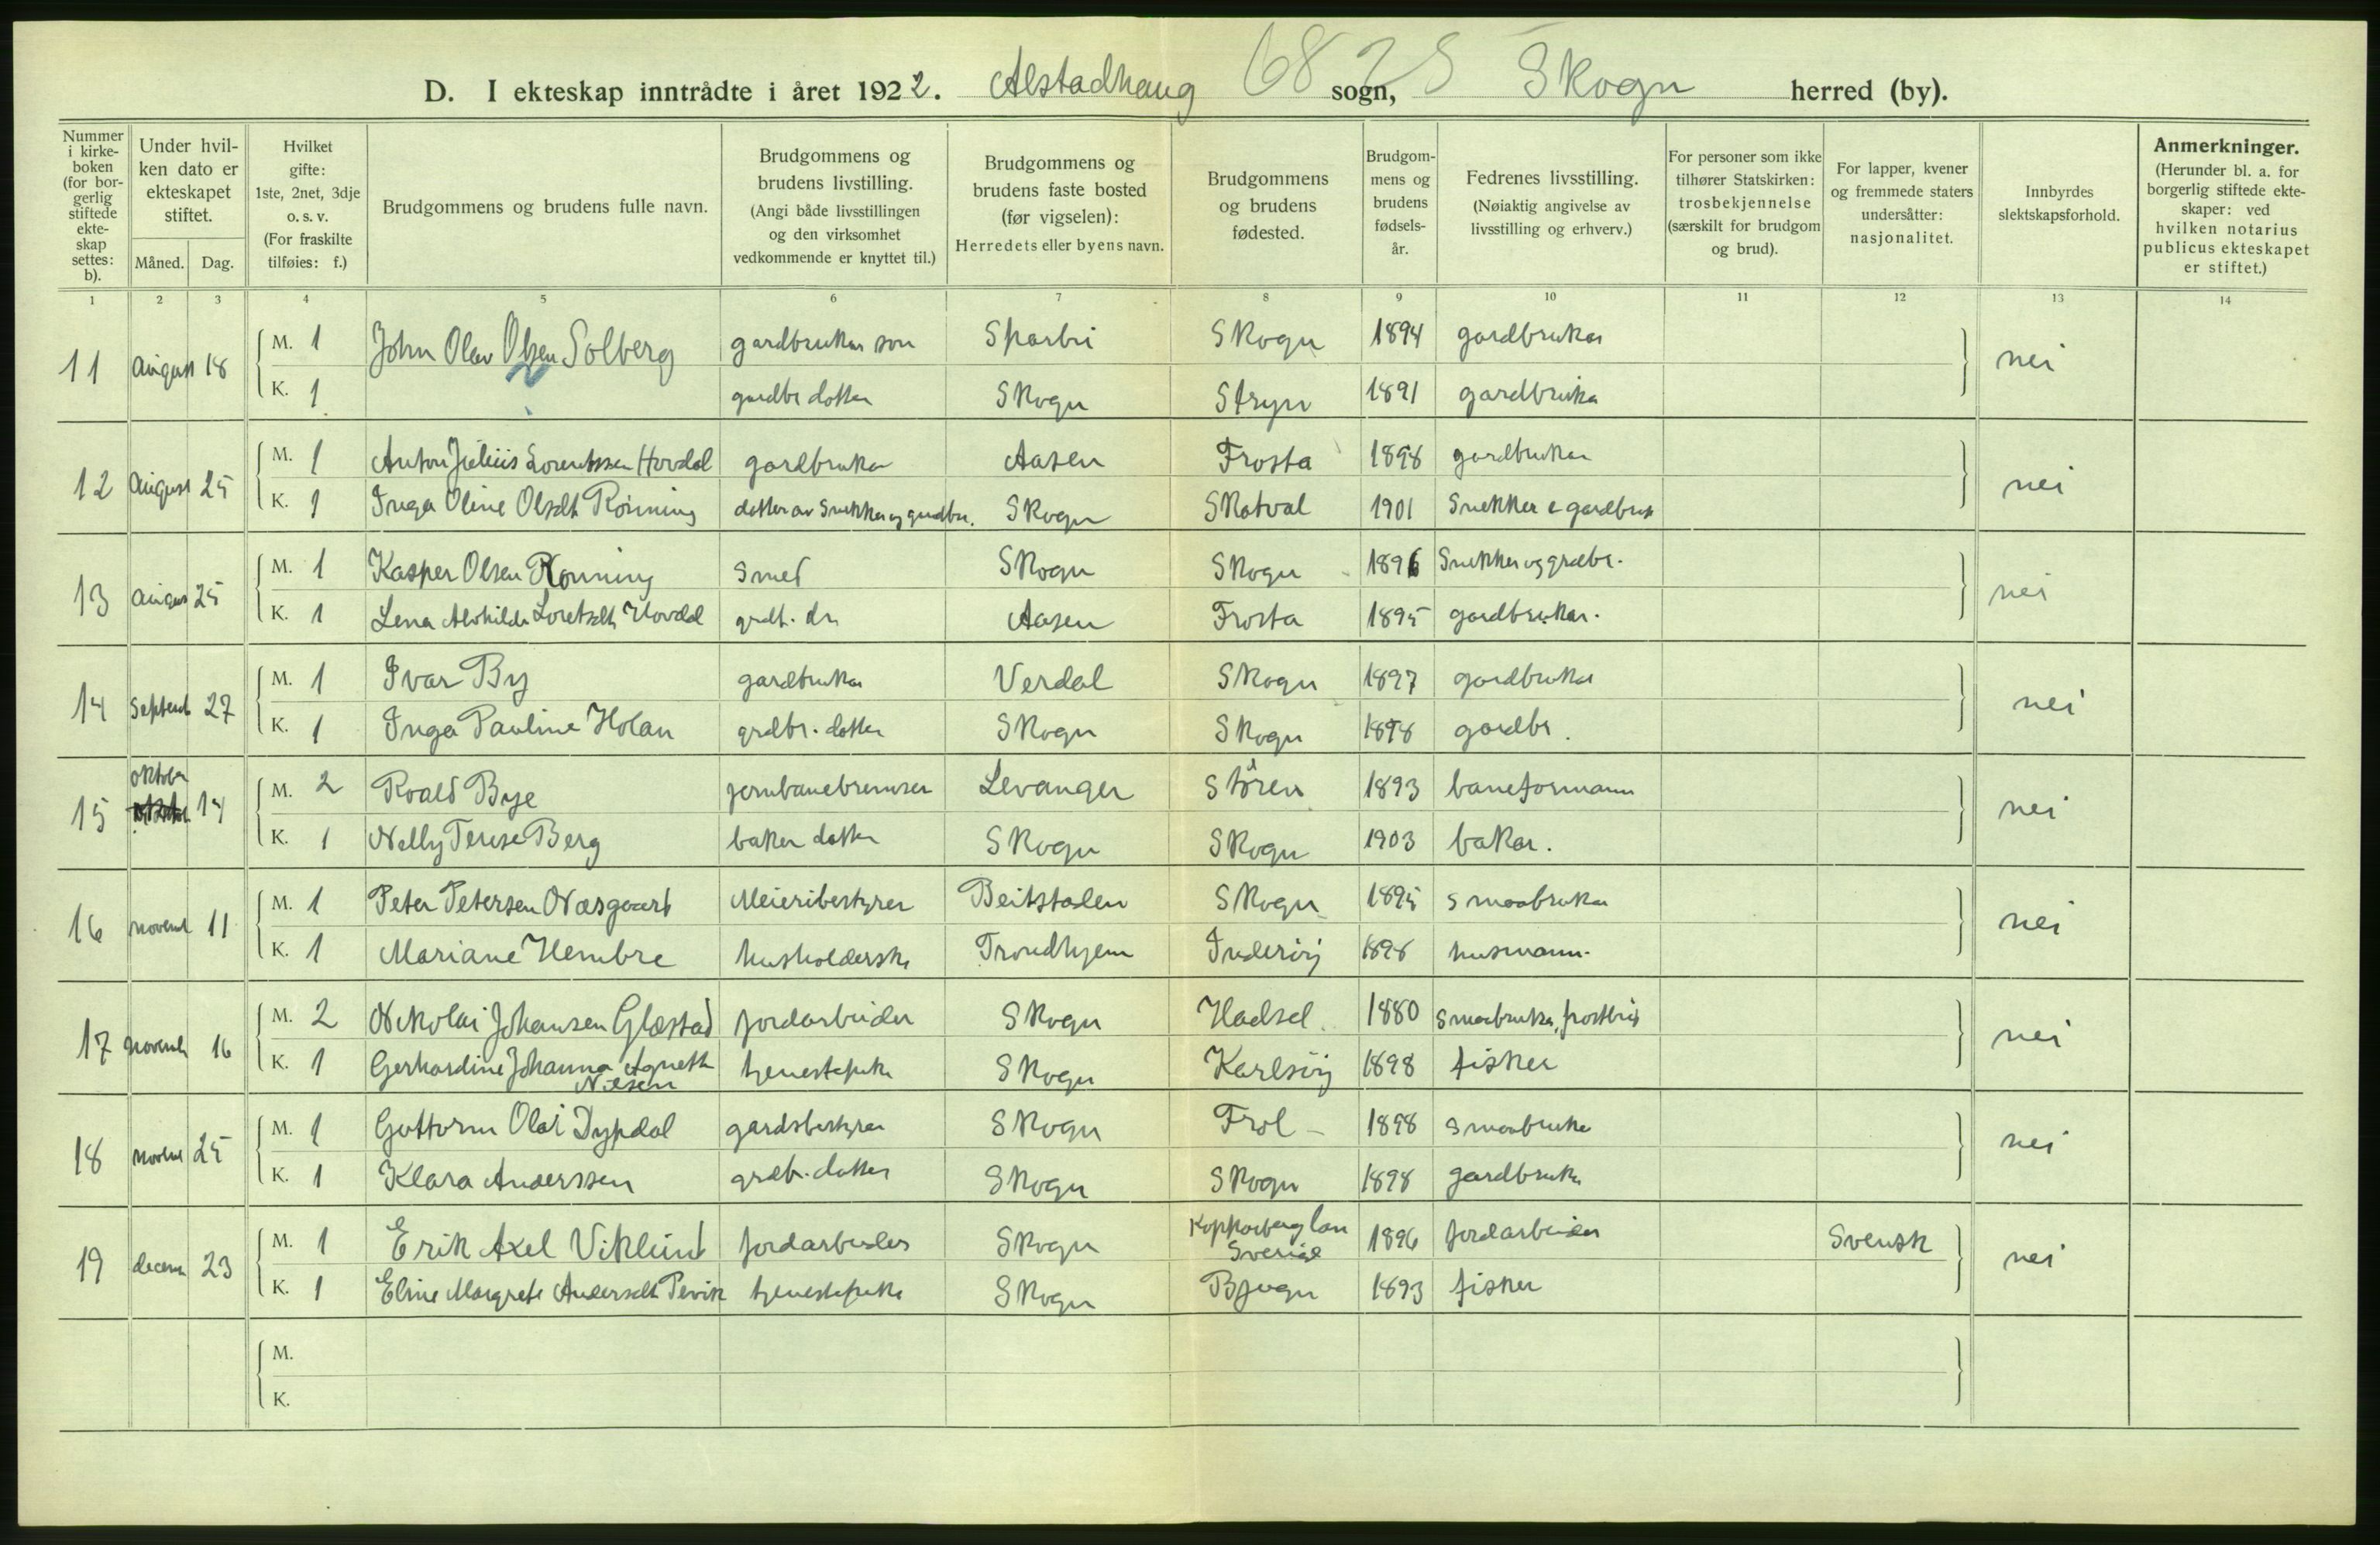 D. I ekteskap inntrådte i året 1922. Alstadhaug sogn, Skogn herred (by).
6825
Nummer i kirke-boken (for bor-gerlig stiftede ekte-skap settes: b).
Under hvil-ken dato er ekteskapet stiftet.
Måned. Dag.
Hvilket gifte: 1ste, 2net, 3dje o. s. v. (For fraskilte tilføies: f.)
Brudgommens og brudens fulle navn.
Brudgommens og brudens livstilling. (Angi både livsstillingen og den virksomhet vedkommende er knyttet til.)
Brudgommens og brudens faste bosted (før vigselen): Herredets eller byens navn.
Brudgommens og brudens fødested.
Brudgom-mens og brudens fødsels-år.
Fedrenes livsstilling. (Nøiaktig angivelse av livsstilling og erhverv.)
For personer som ikke tilhører Statskirken: trosbekjennelse (særskilt for brudgom og brud).
For lapper, kvener og fremmede staters undersåtter: nasjonalitet.
Innbyrdes slektskapsforhold.
Anmerkninger. (Herunder bl. a. for borgerlig stiftede ekte-skaper: ved hvilken notarius publicus ekteskapet er stiftet.)
1 2 3 4 5 6 7 8 9 10 11 12 13 14
11 August 18 M. 1 John Olav Olsen Solberg gardbrukar son Sparbu Skogn 1894 gardbrukar nei
K. 1 gardbr dotter Skogn Stryn 1891 gardbrukar
12 August 25 M. 1 Anton Julius Lorentssen Hovdal gardbrukar Aasen Frosta 1898 gardbrukar nei
K. 1 Inga Oline Olsdt Rönning dotter av Snekker og gardbr. Skogn Skatval 1901 Snekker & gardbruk
13 August 25 M. 1 Kasper Olsen Rönning Smed Skogn Skogn 1896 Snekker og grdbr. nei
K. 1 Lena Alvhilde Loretsdt Hovdal grdb. dr Aasen Frosta 1895 gardbrukar.
14 Septemb 27 M. 1 Ivar By gardbrukar Verdal Skogn 1897 gardbrukar nei
K. 1 Inga Pauline Holan grdbr. dotter Skogn Skogn 1898 gardbr.
15 oktober 14 M. 2 Roald Bye jernbanebremser Levanger Stören 1893 baneformann nei
K. 1 Nelly Terese Berg baker dotter Skogn Skogn 1903 bakar.
16 novemb 11 M. 1 Peter Petersen Næsgaard Meieribestyrer Beitstaden Skogn 1895 smaabrukar nei
K. 1 Mariane Hembre husholderske Trondhjem Inderöy 1898 husmann.
17 novemb 16 M. 2 Nikolai Johansen Glæstad jordarbeider Skogn Hadsel 1880 smaabruker, nei
K. 1 Gerhardine Johanna Agneth Nilsen tjenestepike Skogn Karlsöy 1898 fisker
18 novemb 25 M. 1 Guttorm Olai Dypdal gardsbestyrer Skogn Frol 1898 smaabruker nei
K. 1 Klara Anderssen grdbr. dotter Skogn Skogn 1898 gardbruker
19 decem 23 M. 1 Erik Axel Viklund jordarbeider Skogn Kopparberg lan Sverige 1896 jordarbeider Svensk nei
K. 1 Eline Margrete Andersdt tjenestepike Skogn Bjugn 1893 fisker
M.
K.